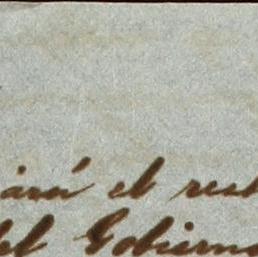 ará el rest
del Gobierno